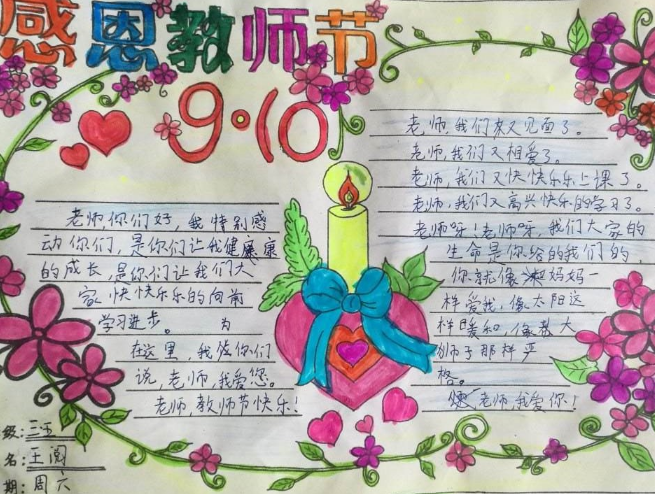 感恩教师节
9·10
老师,你们好,我特别感
动你们,是你们让我健康康
的成长,是你们让我们大
家快快乐乐的向前
学习进步。 为
在这里,我
你们
说,老师,我爱您。
老师,教师节快乐!
老师,我们又见面了。
老师,我们又相爱了。
老师,我们又快快乐乐上课了。
老师,我们又高兴快乐的学习了。
老师呀!老师呀,我们大家的
生命是你给的我们的,
你就像 妈妈一
样爱我,像太阳这
样暖和,像 大
狮子那样严
格。
老师,我爱你!
级:三五
名:王阅
期:周六